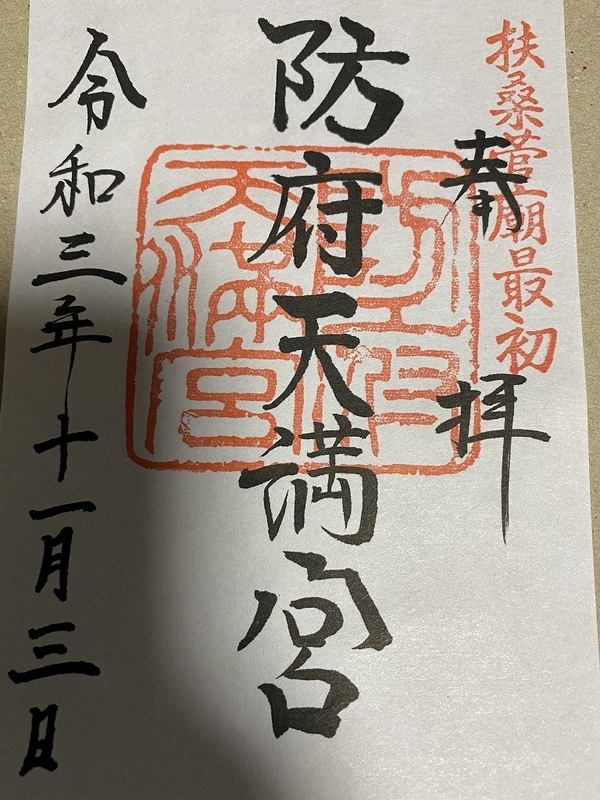 扶桑菅廟最初
奉拝
防府天満宮
令和三年十一月三日